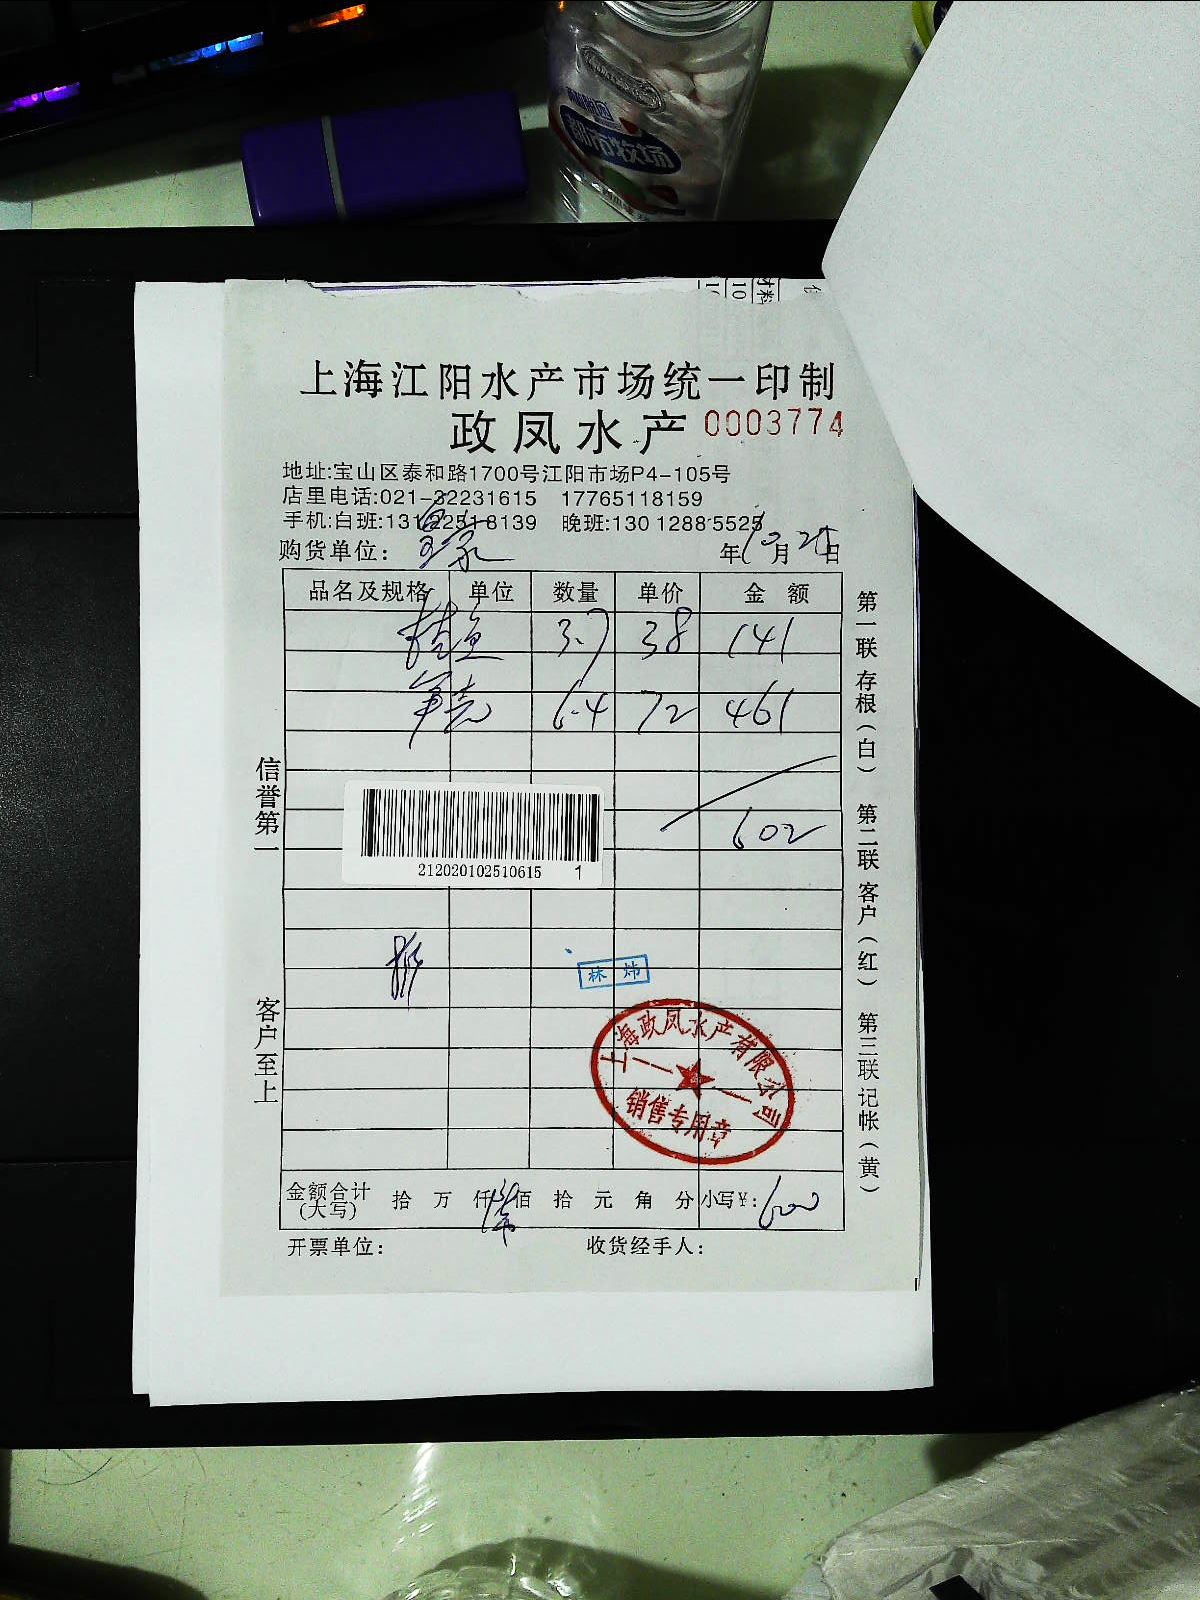 都市牧场
材料
10
上海江阳水产市场统一印制
政凤水产 0003774
地址:宝山区泰和路1700号江阳市场P4-105号
店里电话:021-32231615 17765118159
手机:白班:13122518139 晚班:130 1288 5525
购货单位: 年10月25日
品名及规格 单位 数量 单价 金额
桂鱼 3.7 38 141
6.4 72 461
602
212020102510615 1
林炜
上海政凤水产有限公司
销售专用章
金额合计(大写) 拾 万 仟 佰 拾 元 角 分 小写¥: 600
开票单位: 收货经手人:
信誉第一
客户至上
第一联 存根(白) 第二联 客户(红) 第三联 记帐(黄)